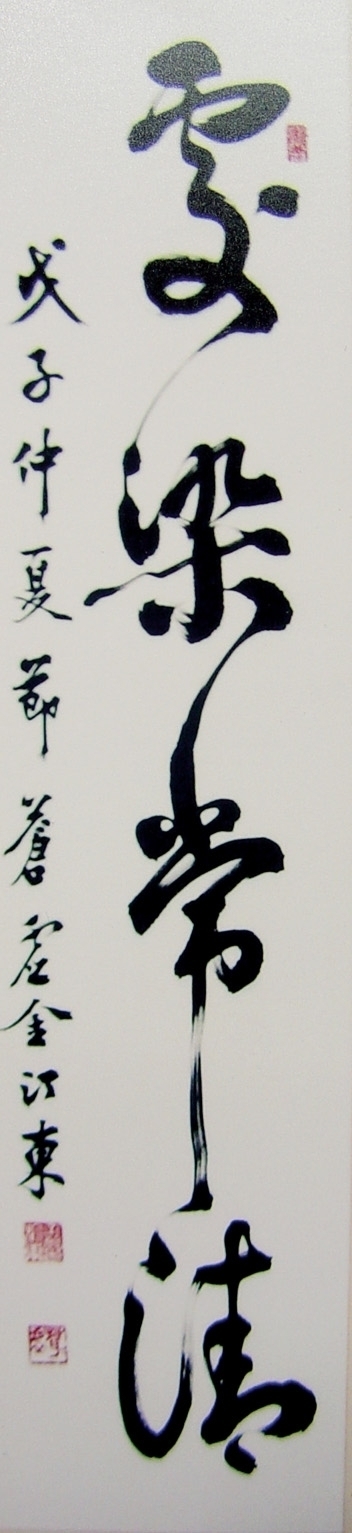 處染常清
戊子仲夏節 蒼虛金江東